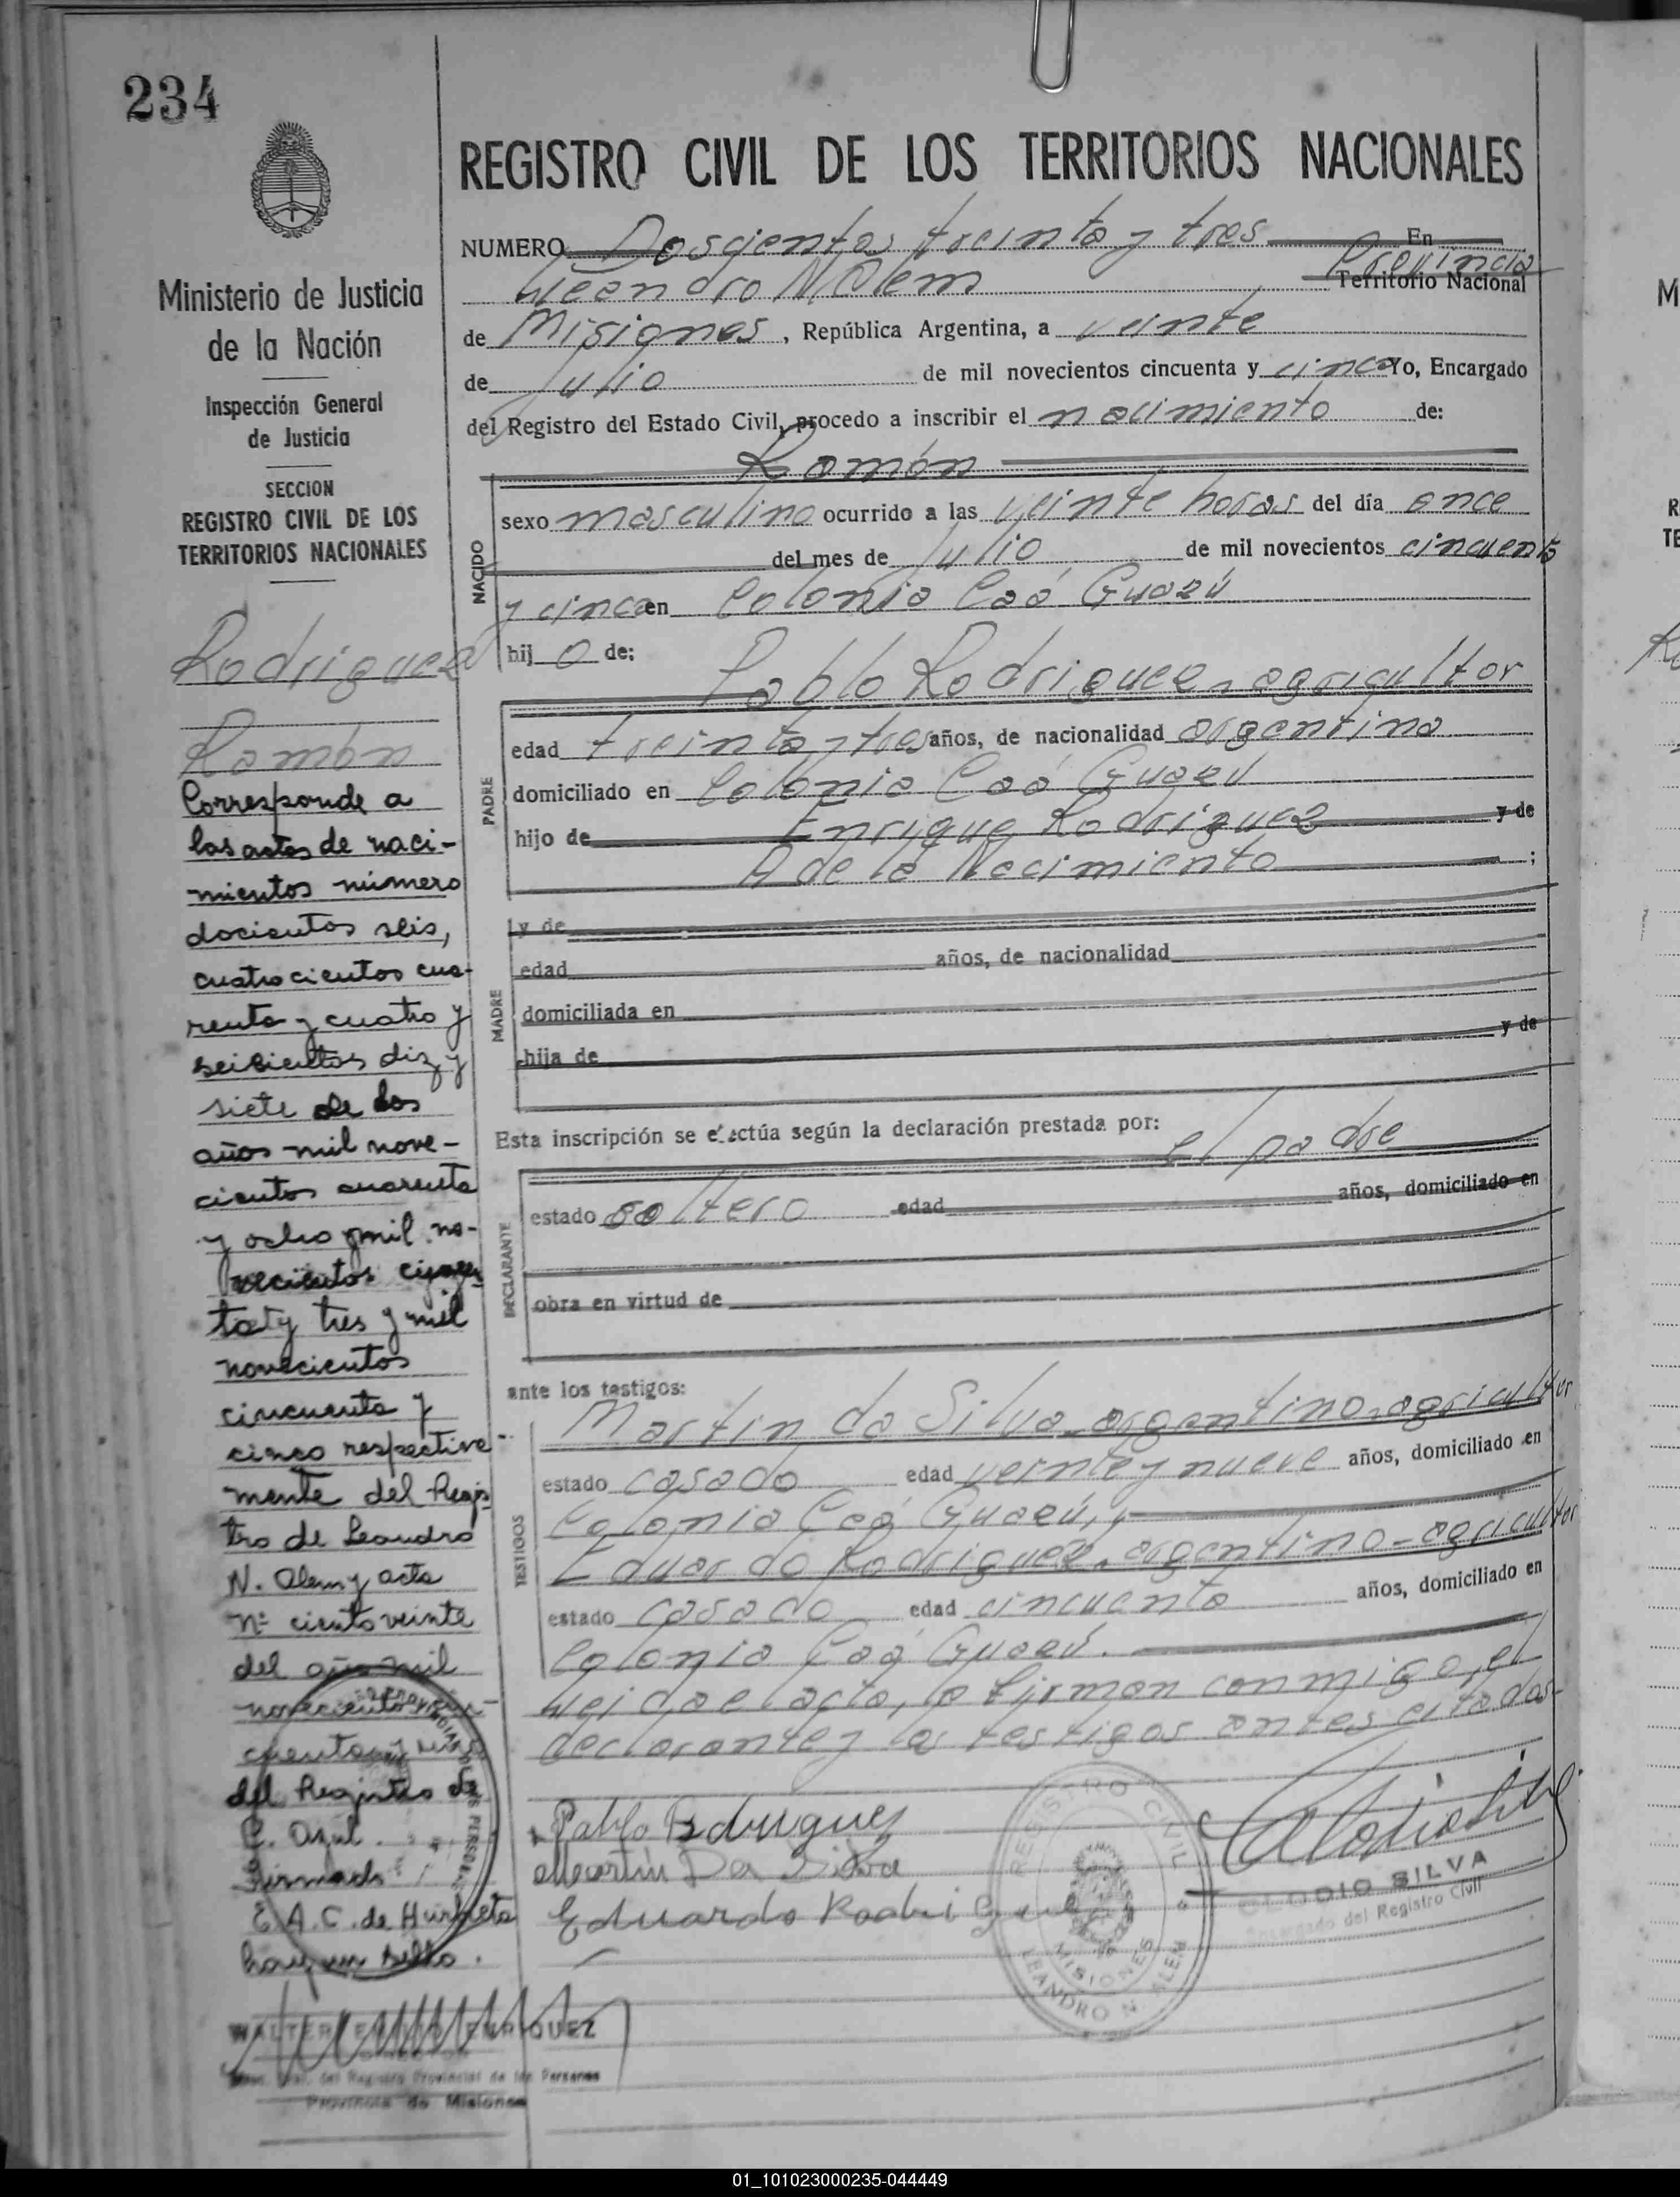 234
Ministerio de Justicia
de la Nación
Inspección General
de Justicia
SECCION
REGISTRO CIVIL DE LOS
TERRITORIOS NACIONALES
Rodriguez
Ramón
Corresponde a
las actas de naci-
mientos número
docientos seis,
cuatrocientos cua-
renta y cuatro y
seicientos diz y
siete de los
años mil nove-
cientos cuarenta
y ocho y mil no-
vecientos cincuen
ta y tres y mil
novecientos
cincuenta y
cinco respectiva-
mente del Regis
tro de Leandro
N. Alem y acta
Nº ciento veinte
del año mil
novecientos cin-
cuenta y
del Registro de
C. Azul.
Firmado
E. A. C. de
hay un sello.
WALTER ENRIQUEZ
DIRECTOR
Gral. del Registro Provincial de las Personas
Provincia de Misiones
REGISTRO CIVIL DE LOS TERRITORIOS NACIONALES
NUMERO Doscientos treinta y tres En
Leandro N Alem Provincia Territorio Nacional
de Misiones, República Argentina, a veinte
de Julio de mil novecientos cincuenta y cinco Yo, Encargado
del Registro del Estado Civil, procedo a inscribir el nacimiento de:
Ramón
NACIDO
sexo masculino ocurrido a las veinte horas del día once
del mes de Julio de mil novecientos cincuenta
y cinco en Colonia Caá Guazú
hijo de:
Pablo Rodriguez - agricultor
PADRE
edad treinta y tres años, de nacionalidad argentino
domiciliado en Colonia Caá Guazú
hijo de Enrique Rodriguez y de
Adela Nacimiento ;
MADRE
y de
edad años, de nacionalidad
domiciliada en
hija de y de
Esta inscripción se efectúa según la declaración prestada por:
el padre
DECLARANTE
estado soltero edad años, domiciliado en
obra en virtud de
ante los testigos:
TESTIGOS
Martin da Silva - argentino - agricultor
estado casado edad veinte y nueve años, domiciliado en
Colonia Caá Guazú, y
Eduardo Rodriguez - argentino - agricultor
estado casado edad cincuenta años, domiciliado en
Colonia Caá Guazú.
Leida el acta, la firman conmigo, el
declarante y los testigos antes citados-
Pablo Rodriguez
Martin Da Silva
Eduardo Rodriguez
REGISTRO CIVIL
MISIONES
LEANDRO N. ALEM
CLODIO SILVA
Encargado del Registro Civil
01_101023000235-044449